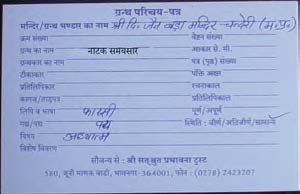 ग्रन्थ परिचय-पत्र
मन्दिर/ग्रन्थ भण्डार का नाम श्री दि. जैन बड़ा मन्दिर चन्देरी (म.प्र.)
क्रम संख्या वेष्टन संख्या
ग्रन्थ का नाम नाटक समयसार आकार से. मी.
ग्रन्थकार का नाम पत्र (पृष्ठ) संख्या
टीकाकार पंक्ति अक्षर
प्रतिलिपिकार रचनाकाल
कागज/ताड़पत्र प्रतिलिपिकाल
लिपि व भाषा फारसी पूर्ण/अपूर्ण
गद्य/पद्य पद्य स्थिति : जीर्ण/अतिजीर्ण/सामान्य
विषय अध्यात्म
विशेष विवरण
सौजन्य से : श्री सत्श्रुत प्रभावना ट्रस्ट
580, जूनी माणेक वाडी, भावनगर-364001, फोन : (0278) 2423207